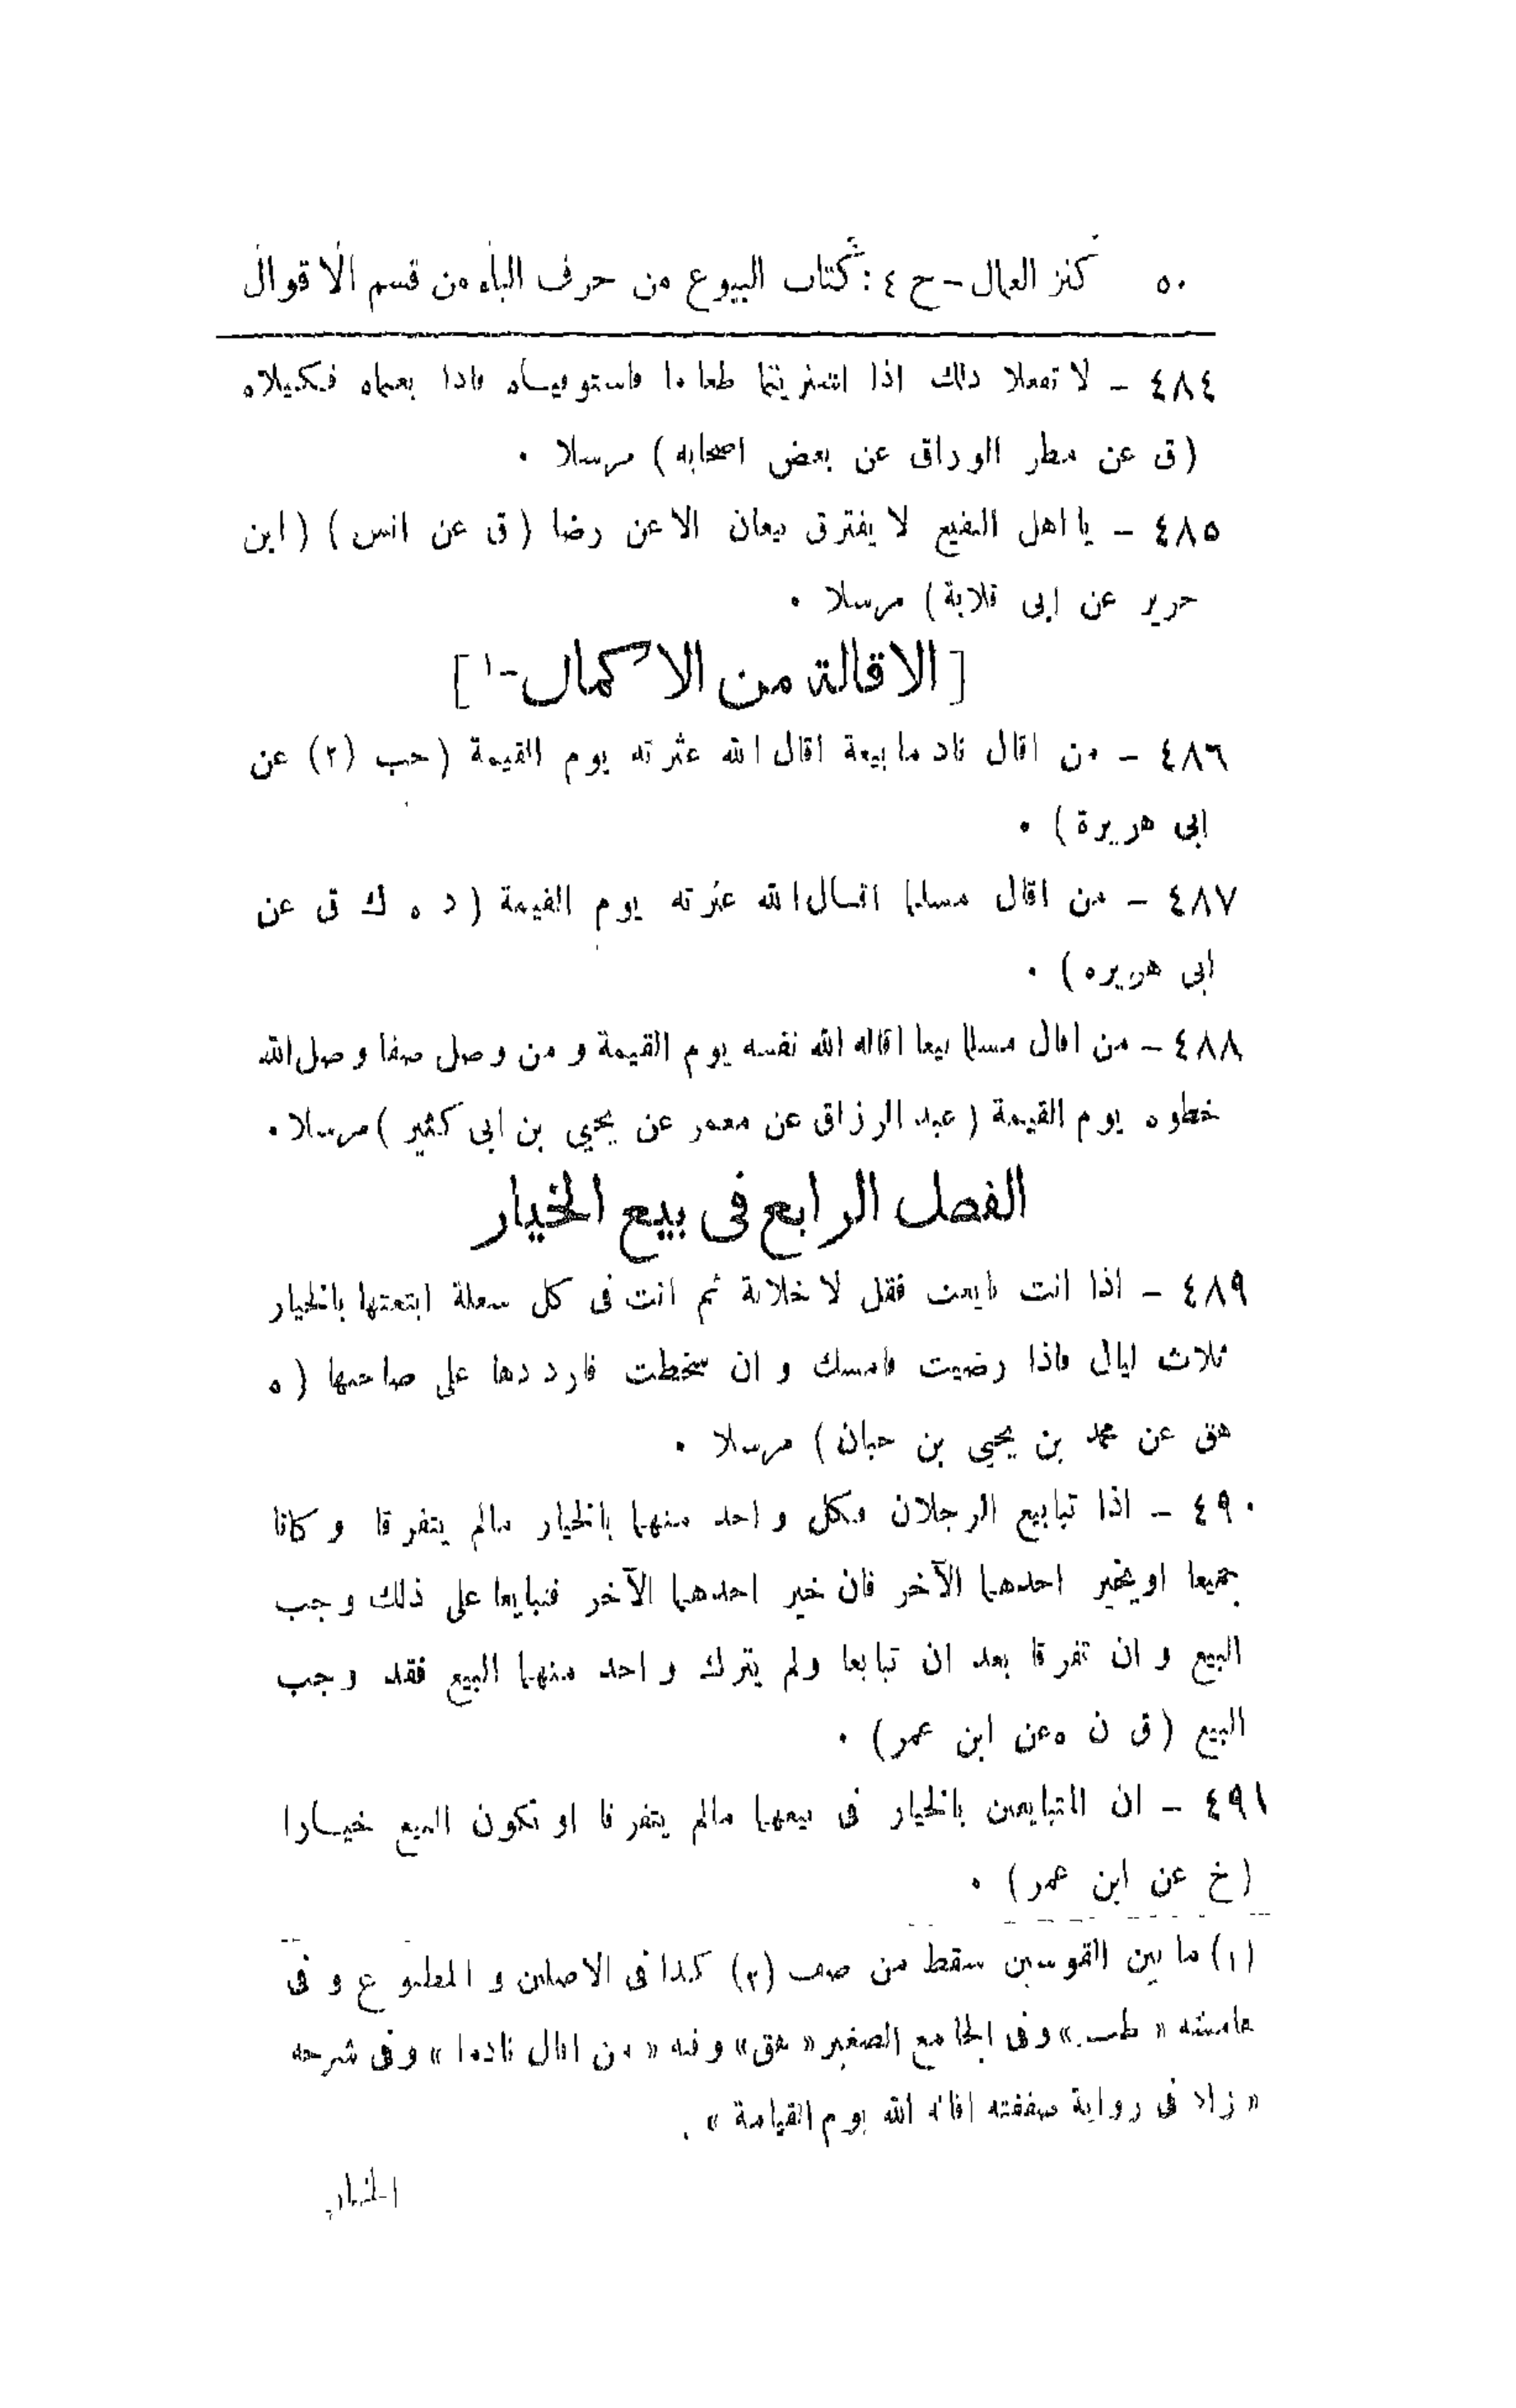 ٥٠ كنز العمال - ج ٤ : كتاب البيوع من حرف الباء من قسم الاقوال
٤٨٤ - لا تفعلا ذلك اذا اشتريتما طعاما فاستوفيـاه فاذا بعتماه فـكيلاه
(ق عن مطر الوراق عن بعض اصحابه) مرسلا .
٤٨٥ - يا اهل البقيع لا يفترق بيعان الا عن رضا (ق عن انس) (ابن
جرير عن ابى قلابة) مرسلا .
[الاقالة من الاكمال -١]
٤٨٦ - من اقال نادما بيعة اقال الله عثرته يوم القيمة (حب (٢) عن
ابى هريرة) .
٤٨٧ - من اقال مسلما اقـال الله عثرته يوم القيمة (د ه ك ق عن
ابى هريره) .
٤٨٨ - من اقال مسلما بيعا اقاله الله نفسه يوم القيمة و من وصل صفا وصل الله
خطوه يوم القيمة (عبد الرزاق عن معمر عن يحيي بن ابى كثير) مرسلا .
الفصل الرابع فى بيع الخيار
٤٨٩ - اذا انت بايعت فقل لا خلابة ثم انت فى كل سعلة ابتعتها بالخيار
ثلاث ليال فاذا رضيت فامسك و ان سخطت فارددها على صاحبها (ه
هق عن محمد بن يحيى بن حبان) مرسلا .
٤٩٠ - اذا تبايع الرجلان فكل واحد منهما بالخيار مالم يتفرقا وكانا
جميعا او يخير احدهما الآخر فان خير احدهما الآخر فتبايعا على ذلك وجب
البيع و ان تفرقا بعد ان تبايعا ولم يترك واحد منهما البيع فقد وجب
البيع (ق ن ه عن ابن عمر) .
٤٩١ - ان المتبايعين بالخيار فى بيعهما مالم يتفرقا او تكون البيع خيـارا
(خ عن ابن عمر) .
(١) ما بين القوسين سقط من صف (٢) كذا فى الاصلين و المطبوع و فى
هامشه « طب » وفى الجامع الصغير « هق » وفيه « من اقال نادما » وفى شرحه
« زاد فى رواية صفقته اقاله الله يوم القيامة » .
الخيار